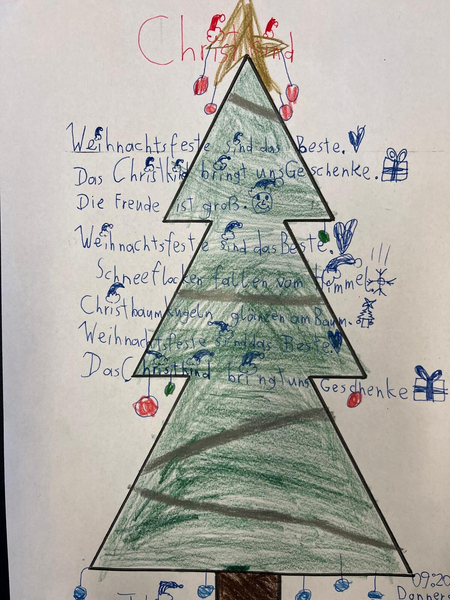 Christkind
Weihnachtsfeste sind das Beste.
Das Christkind bringt uns Geschenke.
Die Freude ist groß.
Weihnachtsfeste sind das Beste.
Schneeflocken fallen vom Himmel.
Christbaumkugeln glänzen am Baum.
Weihnachtsfeste sind das Beste.
Das Christkind bringt uns Geschenke
09:20